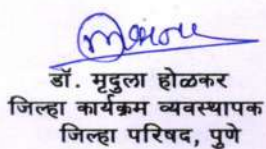 डॉ. मृदुला होळकर
जिल्हा कार्यक्रम व्यवस्थापक
जिल्हा परिषद, पुणे